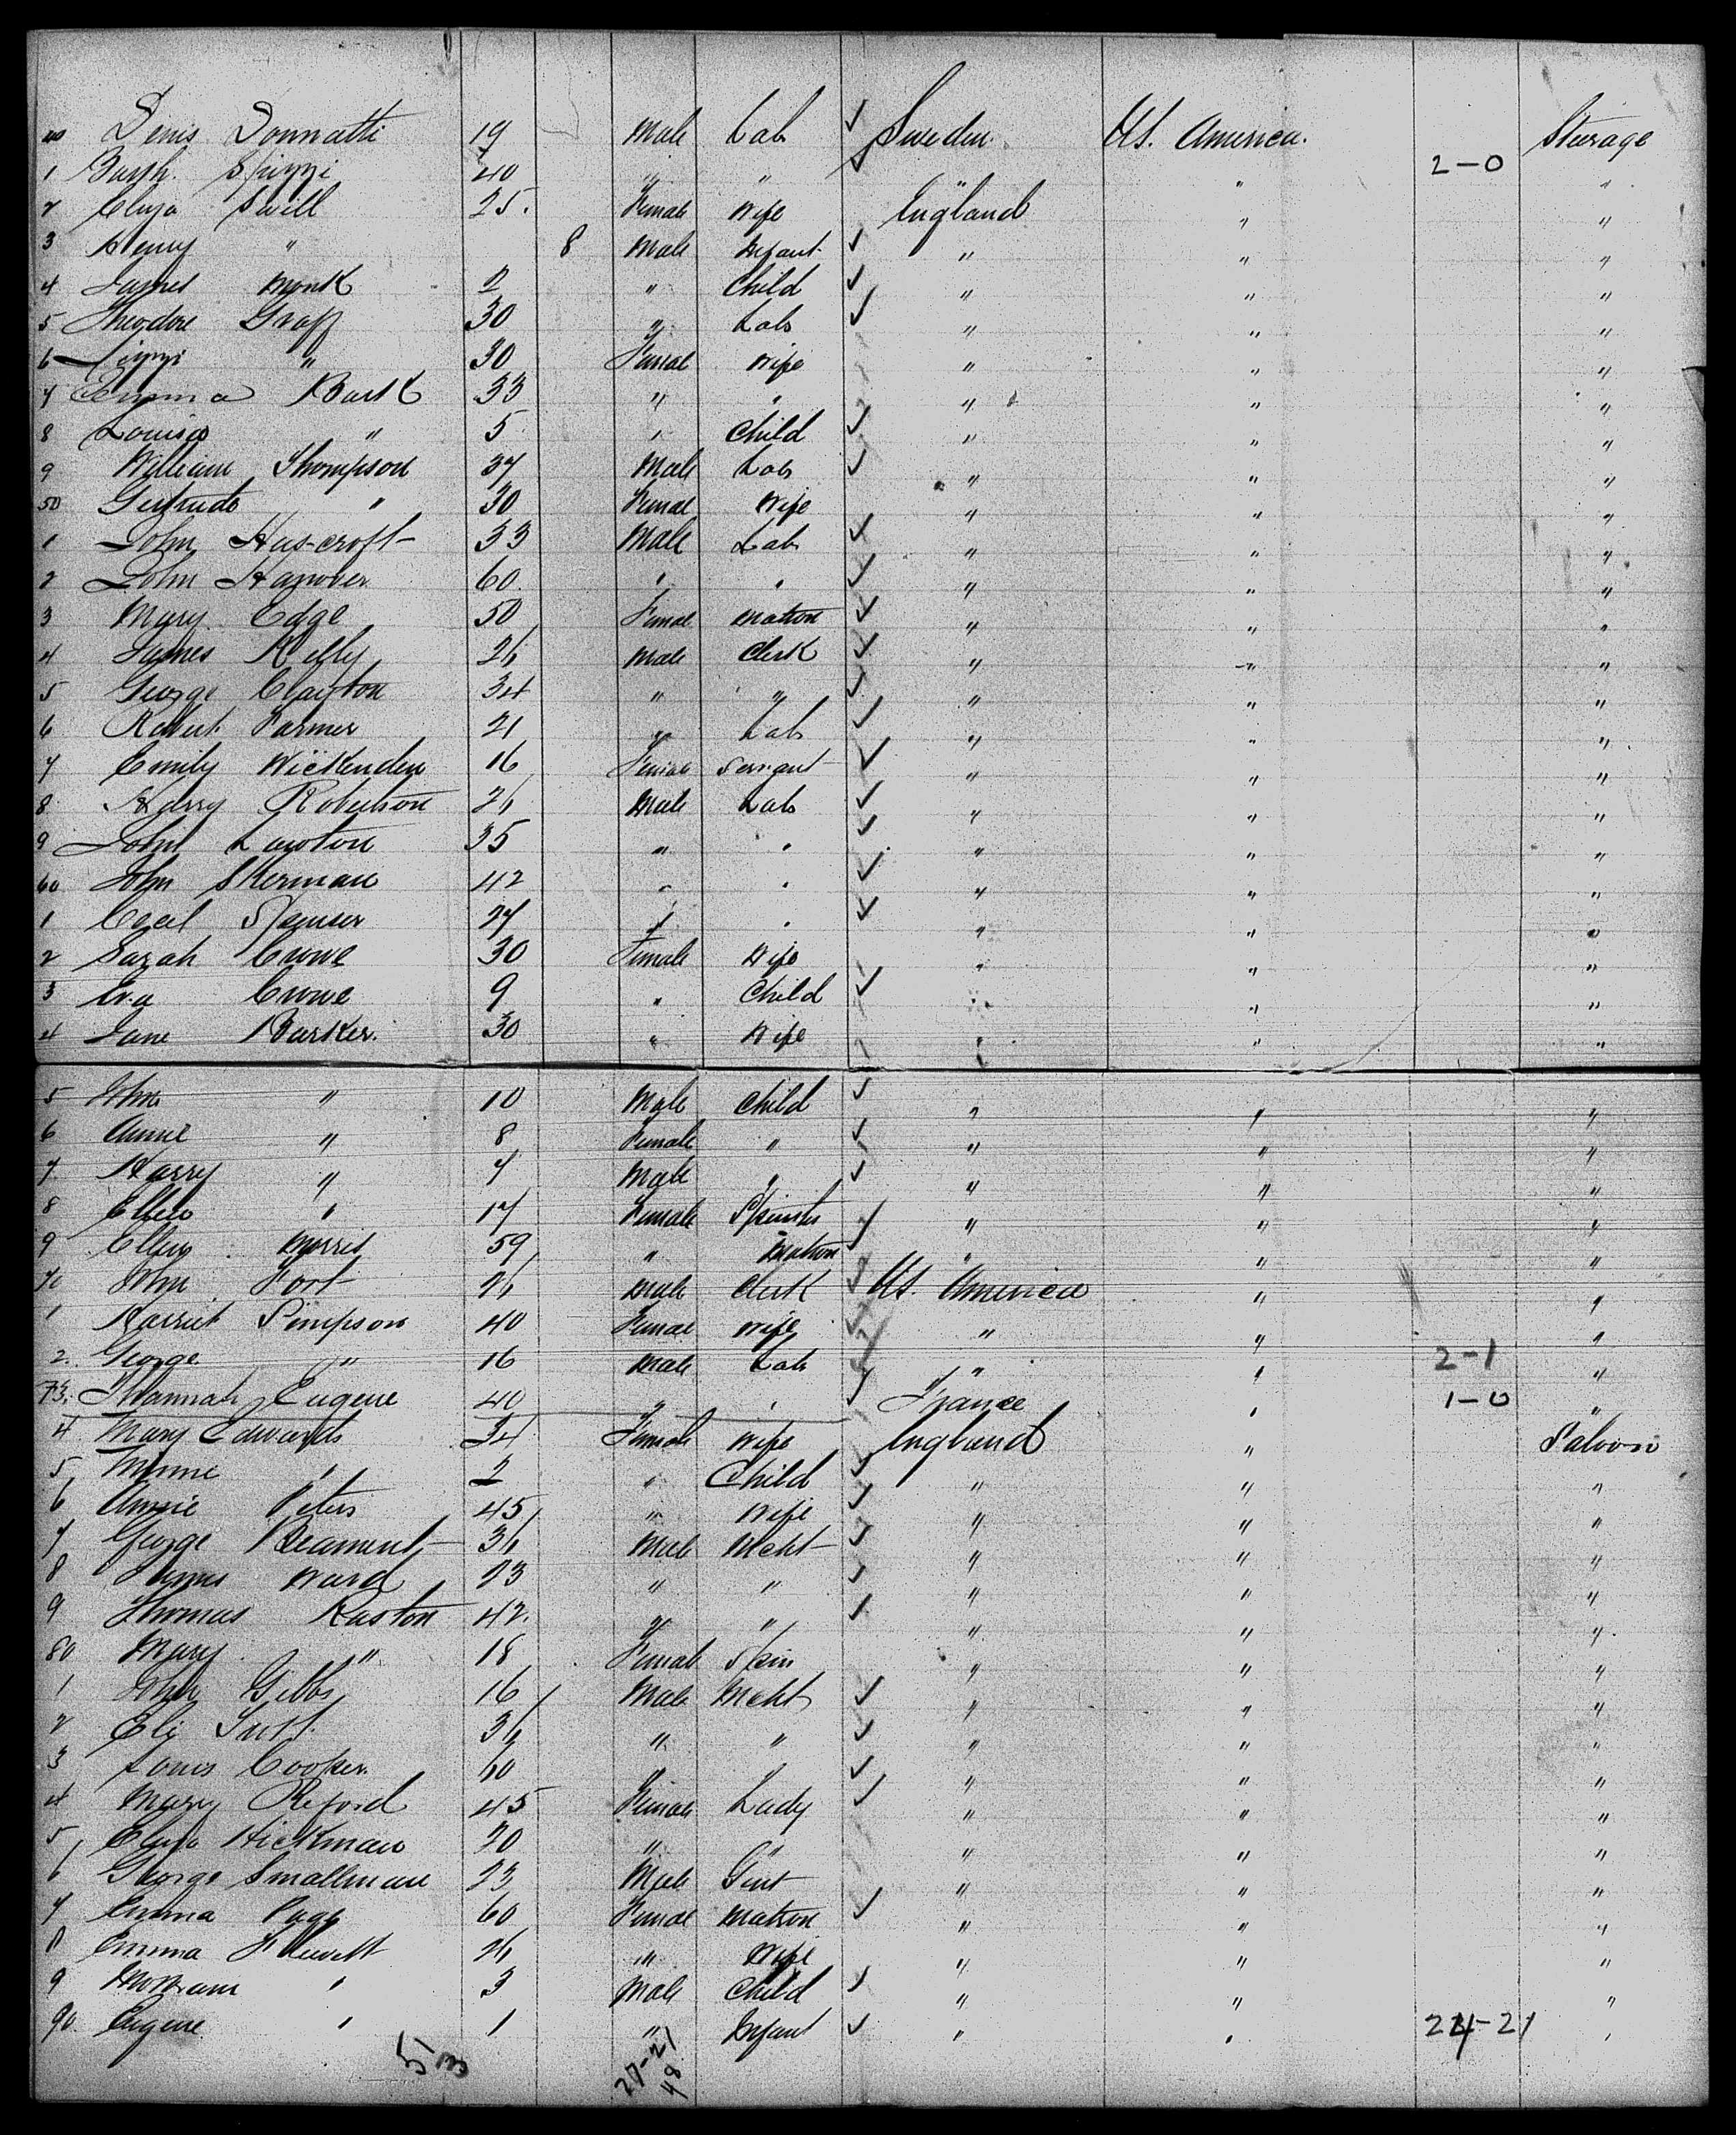 40 Denis Donnatti 19 Male Lab Sweden U.S. America. Sterage
1 40 " " 2-0 " "
2 Eliza Swill 25. Female Wife England " "
3 Henry " 8 Male Infant " " "
4 James Monk 2 " Child " " "
5 Theodore Graff 30 " Lab " " "
6 Lizzi " 30 Female Wife " " "
7 Emma 33 " " " " "
8 Louisa " 5 " Child " " "
9 William Thompson 37 Male Lab " " "
50 Gertrude " 30 Female Wife " " "
1 John Hus-croft 33 Male Lab " " "
2 John Hanover 60. " " " " "
3 Mary Edge 50 Female Matron " " "
4 James Kelly 26 Male Clerk " " "
5 George Clayton 34 " " " " "
6 Robert Farmer 21 " Lab " " "
7 Emily Wickenden 16 Female Servant " " "
8 Harry Robertson 26 Male Lab " " "
9 John Lawton 35 " " " " "
60 John Skerman 42 " " " " "
1 Cecil Spenser 27 " " " " "
2 Sarah Crowe 30 Female Wife " " "
3 Eva Crowe 9 " Child " " "
4 Jane Barker. 30 " Wife " " "
5 John " 10 Male Child " " "
6 Annie " 8 Female " " " "
7 Harry " 7 Male " " " "
8 Ellen " 17 Female Spinster " " "
9 Ellen Morris 59 " Matron " " "
70 John Fort 26 Male Clerk U.S. America " "
1 Harriet Simpson 40 Female Wife " " "
2. George " 16 Male Lab " " 2-1 "
73. Eugene 40 " " France " 1-0 "
4 Mary Edwards 34 Female Wife England " Saloon
5 Minnie " 2 " Child " " "
6 Annie Peters 45 " Wife " " "
7 George Beament 36 Male Mcht " " "
8 James Ward 23 " " " " "
9 Thomas Raston 42. " " " " "
80 Mary " 18 Female Spin " " "
1 John Gibbs 16 Male Mcht " " "
2 Eli 36 " " " " "
3 Louis Cooper. 60 " " " " "
4 Mary Reford 45 Female Lady " " "
5 Eliza Hickman 20 " " " " "
6 George Smallman 23 Male Gent " " "
7 Emma Page 60 Female Matron " " "
8 Emma Flewett 26 " Wife " " "
9 " 3 Male Child " " "
90. Eugene " 1 " Infant " " 24-21 "
53 27-21
48